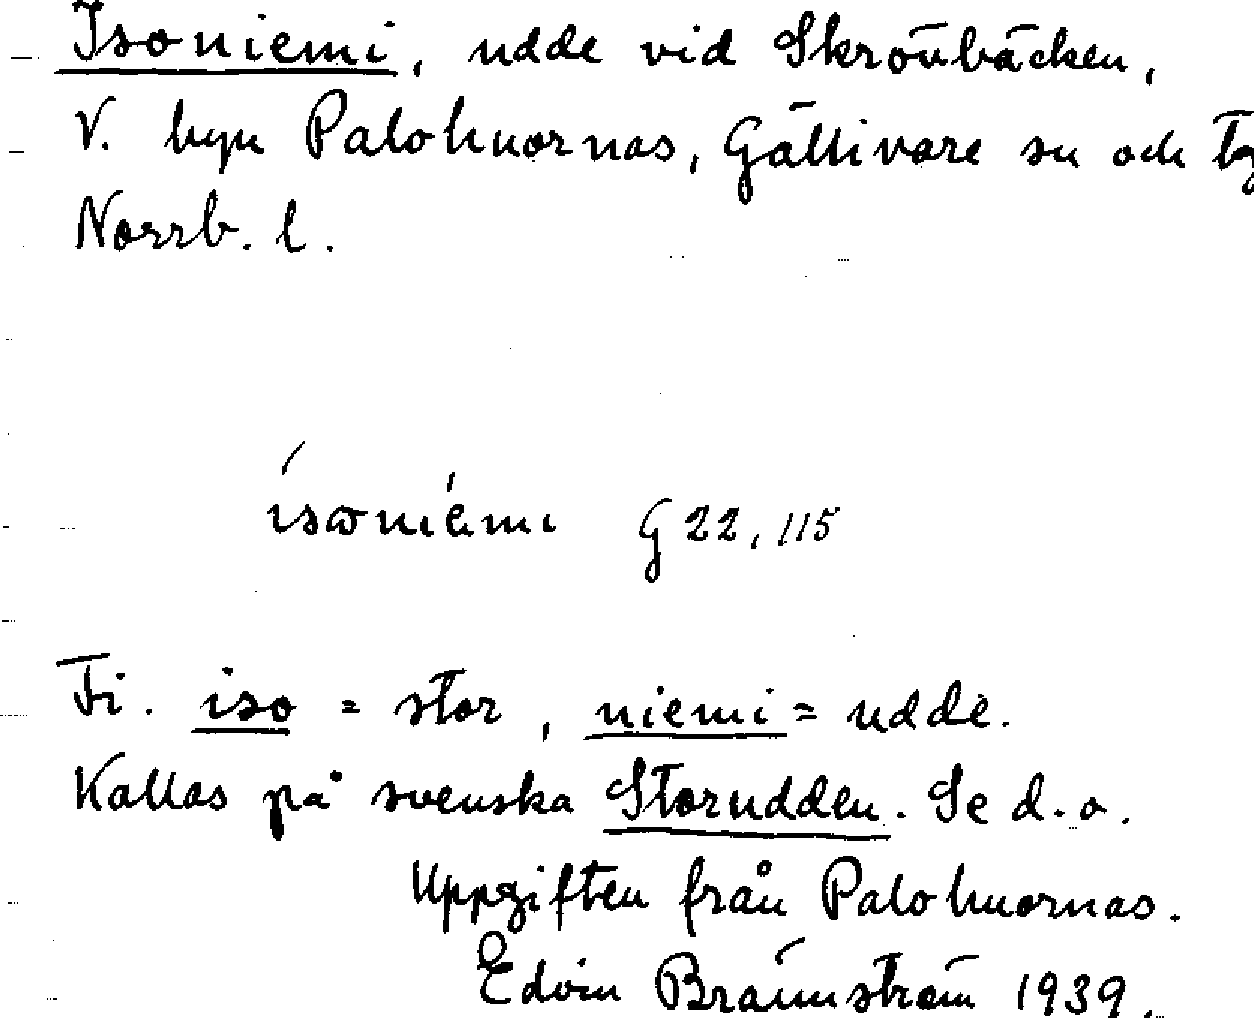 Isoniemi, udde vid Skröübäcken,
V. byn Palohuornas, Gällivare sn och tg
Norrb. l.
ísoniémi G 22, 115
Fi. iso = stor, niemi = udde.
Kallas på svenska Storudden. Se d. o.
Uppgiften från Palohuornas.
Edvin Brännström 1939.